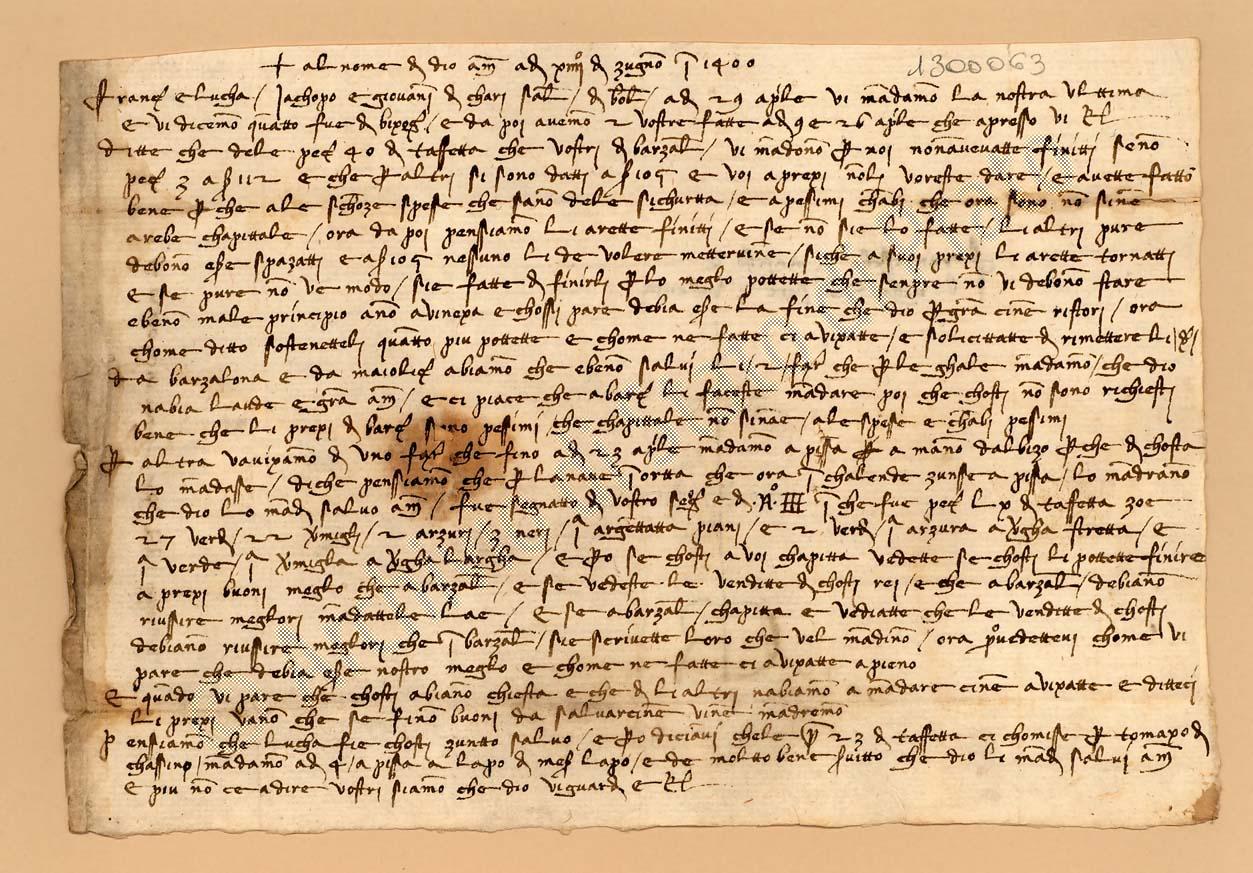 + al nome d dio am ad xiiij° d zugno 1400
1300063
Franc e lucha / Jachopo e giovani d chari sal / d bol / ad 29 aple vi madamo la nostra ulttima
e vi dicemo quatto fue d bixog / e da poi avemo 2 vostre fatte ad 9 e 26 aple che apresso vi R
ditte che dele peç 40 d taffetta che vostri d barzal / vi madono p noi non avevatte finitti seno
peç 3 a ß 112 e che p altri si sono datti a ß 105 e voi a prexi noli voreste dare / e avette fatto
bene p che ale schoze spese che sano dele sichurtta / e a pessimi chabi che ora sono no sine
arebe chapittale / ora da poi pensiamo li arette finitti / e se no sie lo fatte / li altri pure
debono ese spazatti e a ß 105 nessuno li de volere mettervine / siche a suoi prexi li arette tornatti
e se pure no ve modo / sie fatte d finirli p lo meglo pottette che senpre no vi debono stare
ebeno male principio ano avinexa e chossi pare debia ese la fine che dio p gra cine ristori / ora
chome ditto sostenetteli quatto piu pottette e chome ne fatte ci avixatte / e solicittatte d rimettere li d
da barzalona e da maiolic abiamo che ebeno salvi li / 2 / far che p le ghale madamo / che dio
nabia laude e gra am / e ci piace che a barç li faceste madare poi che chosti no sono richiesti
bene che li prexi d barç sono pessimi / che chapittale no sinae / ale spese e chabi pessimi
P altra vavixamo d uno far che fino ad 23 aple madamo a pissa p a mano dalbizo p che d chosta
lo madasse / diche pensiamo che p la nave torta che ora chalende zunse a pisa / lo madrano
che dio lo mad salvo am / fue segnatto d vostro seg e d n° III che fue peç lx d taffetta zoe
27 verd / 22 vmigli / 2 arzuri / 3 neri / 1 argettatta piani / e 2 verd / 1 arzura a vgha stretta / e
1 verde / 1 vmigla a vgha largha / e po se chosti a voi chapitta vedette se chosti li pottette finire
a prexi buoni meglo che a barzal / e se vedeste le venditte d chosti rei / e che a barzal / debiano
riussire meglori madattele lae / e se a barzal / chapitta e vediatte che le venditte d chosti
debiano riussire meglori che barzal / sie scrivette loro che vel madino / ora pvedettevi chome vi
pare che debia ese nostro meglo e chome ne fatte ci avixatte a pieno
e quado vi pare che chosti abiano chiesta e che d li altri nabiamo a madare cine avixatte e ditteci
li prexi vano che se fino buoni da salvarcine vine madremo
pensiamo che lucha sie chosti zuntto salvo / e po diciavi che le p 23 d taffetta ci chomisse p tomaxo d
chassino / madamo ad 4 / a pissa a lapo d mes lapo / e de moltto bene svitto che dio li mad salvi am
e piu no ce a dire vostri siamo che dio vi guard e R